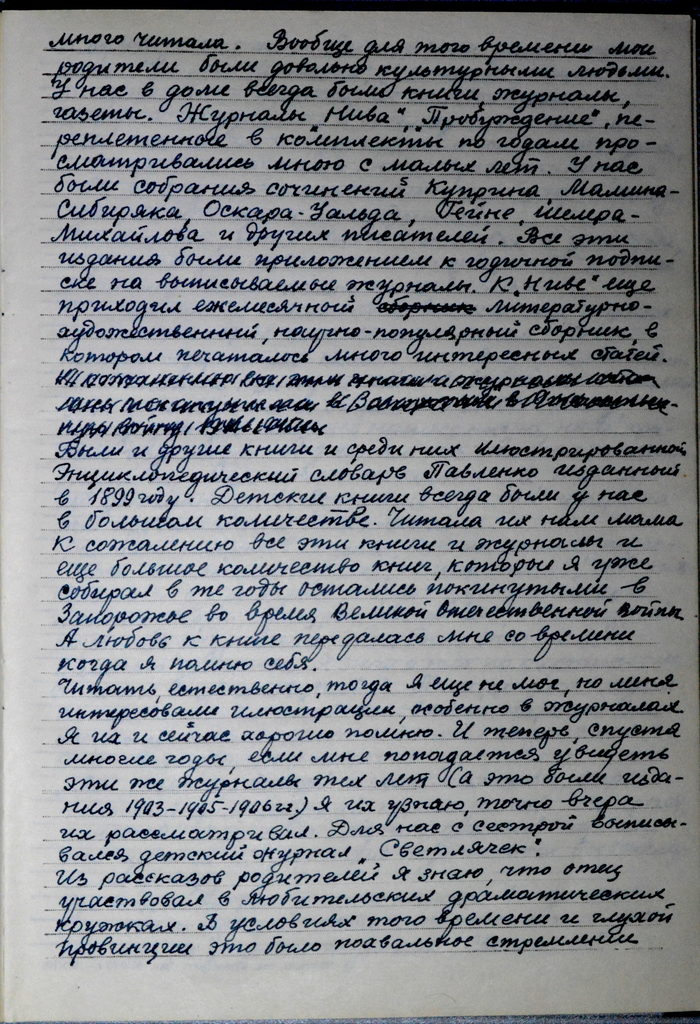 много читала. Вообще для того времени мои
родители были довольно культурными людьми.
У нас в доме всегда были книги, журналы,
газеты. Журналы „Нива“, „Пробуждение“, пе-
реплетенные в комплекты по годам про-
сматривались мною с малых лет. У нас
были собрания сочинений Куприна, Мамина-
Сибиряка, Оскара-Уальда, Гейне, Шелера-
Михайлова и других писателей. Все эти
издания были приложением к годичной подпи-
ске на выписываемые журналы. К „Ниве“ еще
приходил ежемесячный сборник литературно-
художественный, научно-популярный сборник, в
котором печаталось много интересных статей.
К сожалению все эти книги и журналы
Были и другие книги и среди них илюстрированной
Энциклопедический словарь Павленко изданный
в 1899 году. Детские книги всегда были у нас
в большом количестве. Читала их нам мама
К сожалению все эти книги и журналы и
еще большое количество книг, которые я уже
собирал в те годы остались покинутыми в
Запорожье во время Великой отечественной войны
А любовь к книге передалась мне со времени
когда я помню себя.
Читать, естественно, тогда я еще не мог, но меня
интересовали илюстрации, особенно в журналах
Я их и сейчас хорошо помню. И теперь, спустя
многие годы, если мне попадается увидеть
эти же журналы тех лет (а это были изда-
ния 1903-1905-1906 гг.) я их узнаю, точно вчера
их рассматривал. Для нас с сестрой выписы-
вался детский журнал „Светлячек“.
Из рассказов родителей я знаю, что отец
участвовал в любительских драматических
кружках. В условиях того времени и глухой
провинции это было похвальное стремление